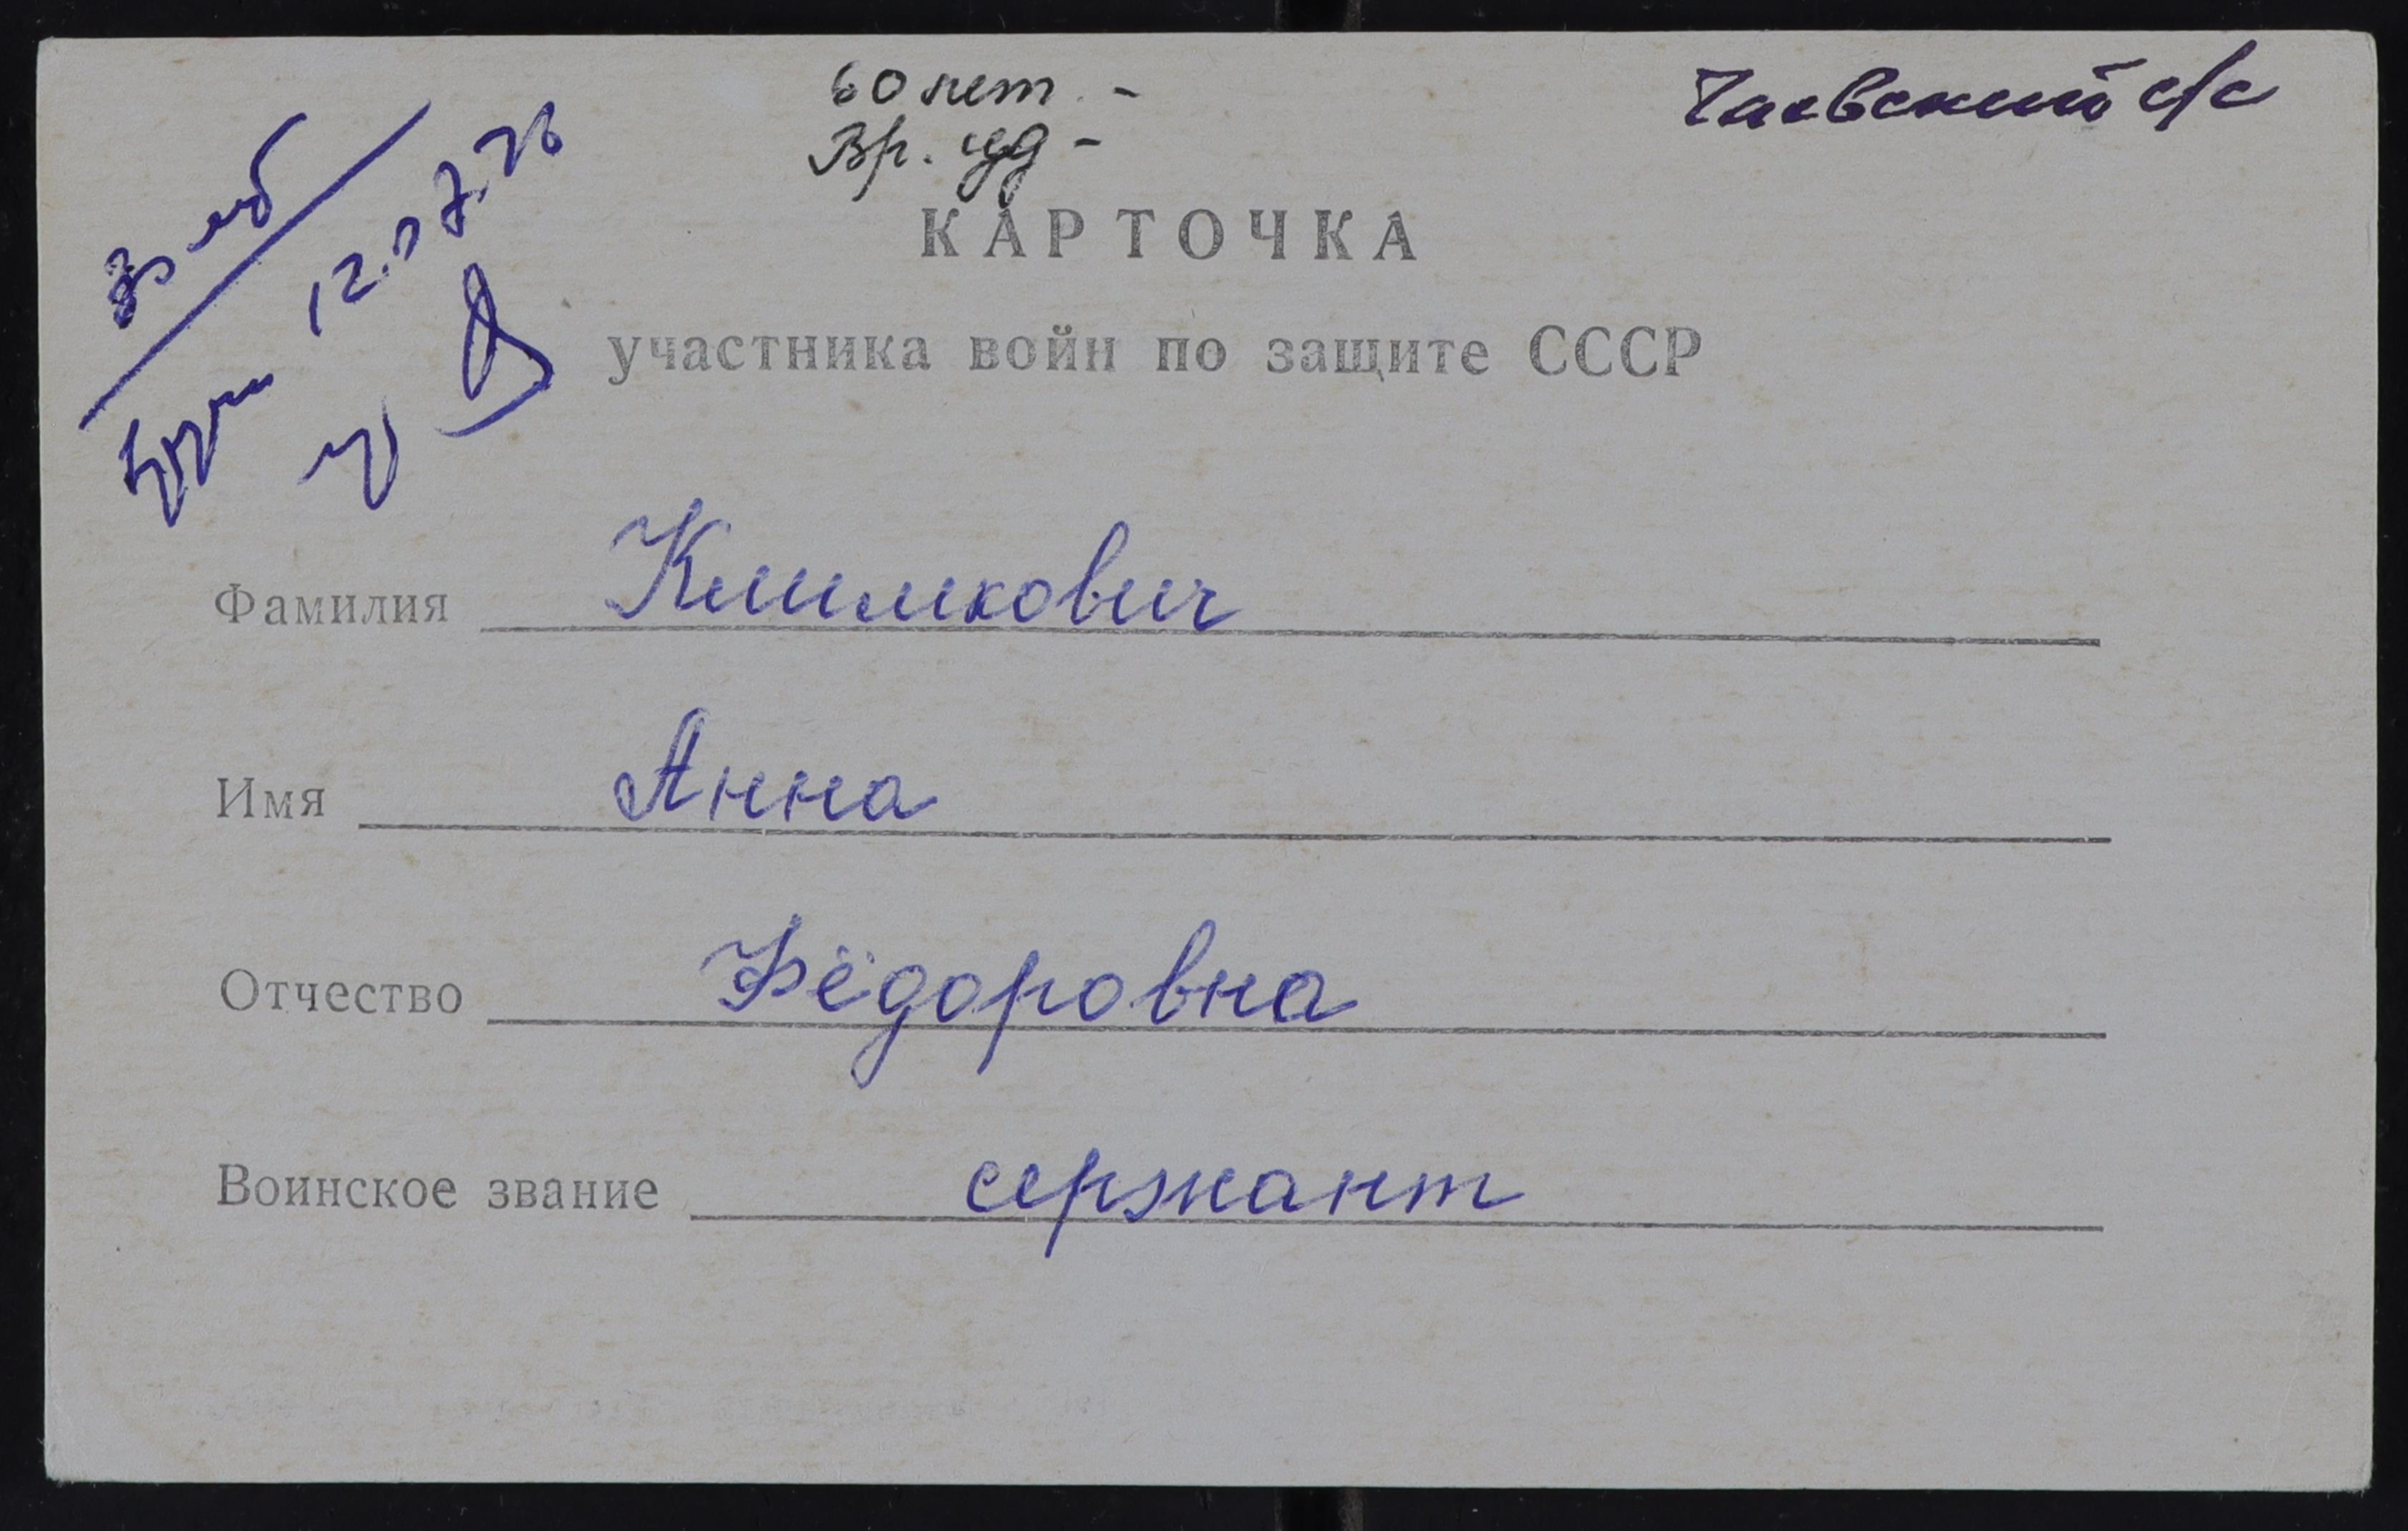 60 лет -
Вр. уд -
Гаевский с/с
КАРТОЧКА
участника войн по защите СССР
Фамилия Климкович
Имя Анна
Отчество Фёдоровна
Воинское звание сержант